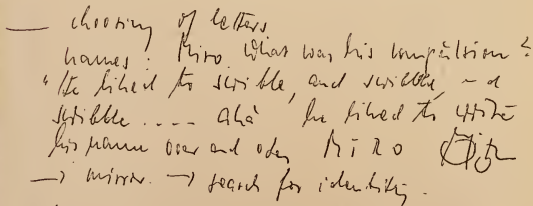 — choosing of letters
names: Miro. What was his compulsion?
"He liked to scribble, and scribble, and
scribble .... aha he liked to write
his name over and over, MIRO
→ mirror. → search for identity.